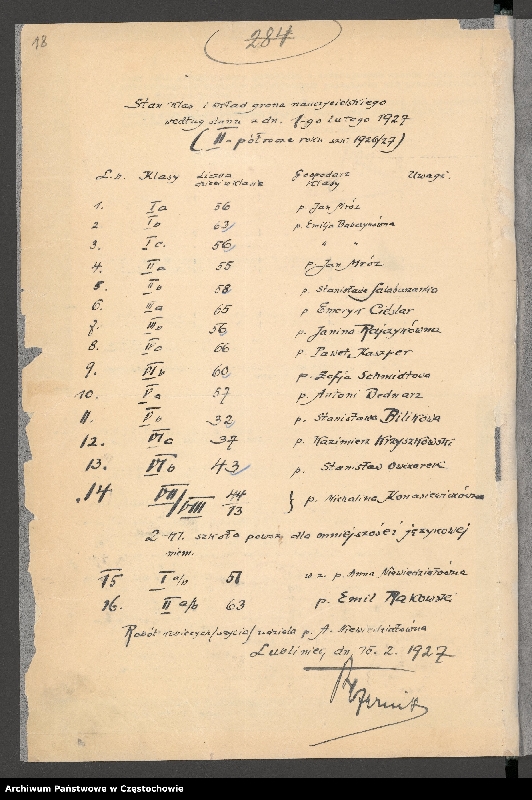 18
284
Stan klas i skład grona nauczycielskiego
według stanu z dn. 1-go lutego 1927
(II-półrocze roku szk. 1926/27)
L.b. Klasy Liczba dzieci w klasie Gospodarz Klasy Uwagi.
1. Ia 56 p. Jan Mróz
2 Ib 63 p. Emilja
3. Ic. 56 " "
4. IIa 55 p. Jan Mróz
5. IIb 58 p. Stanisława
6. IIIa 65 p. Emeryk Cieślar
7. IIIb 56 p. Janina Rajczykówna
8. IVa 66 p. Paweł Kaszper
9. IVb 60 p. Zofja Schmidtowa
10. Va 57 p. Antoni Bednarz
11. Vb 32 p. Stanisława Bilikowa
12. VIa 37 p. Kazimierz Krzyszkowski
13. VIb 43 p. Stanisław Owczarek
14 VII/VIII 44 13 } p. Michalina Konasiewiczówna
2-kl. szkoła powsz. dla mniejszości językowej
niem.
15 I a/b 51 w z. p. Anna Niewiedziałówna
16. II a/b 63 p. Emil Rakowski
Robót ręcznych/szycia/udziela p. A. Niewiedziałówna
Lubliniec, dn. 15. 2. 1927
Archiwum Państwowe w Częstochowie